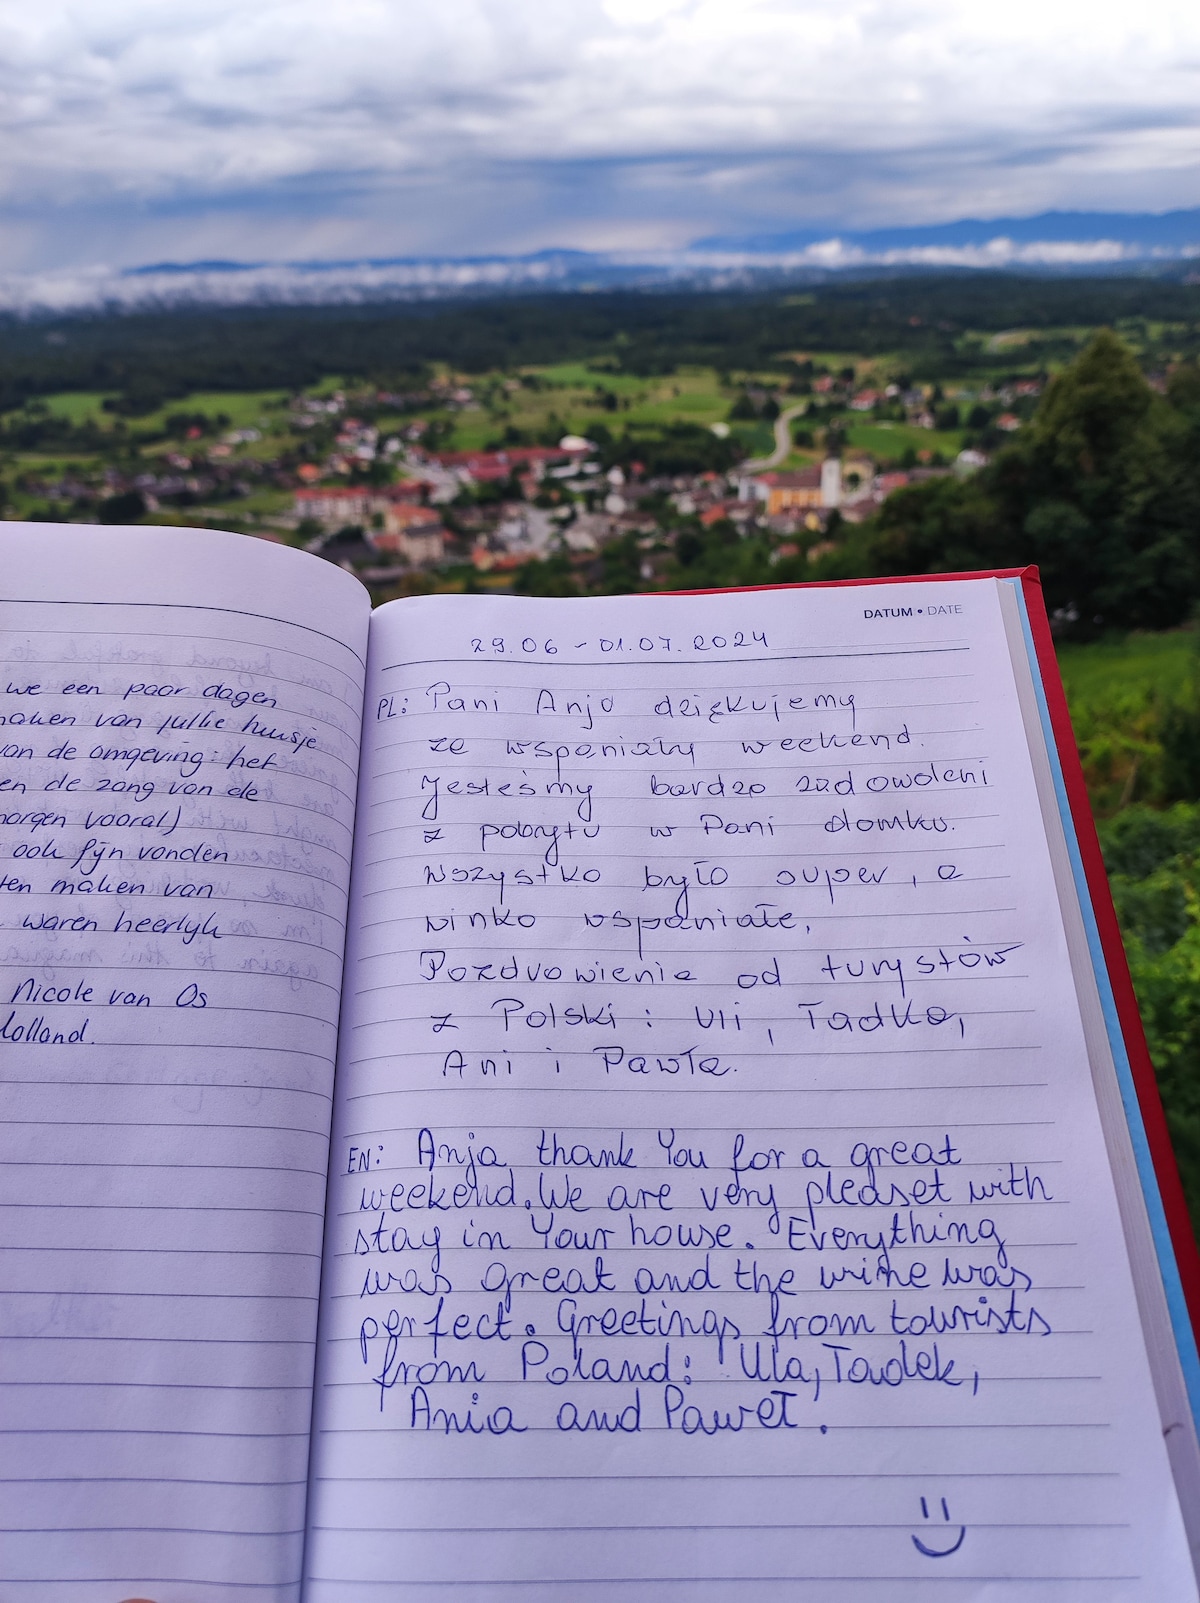 we een paar dagen
maken van jullie huisje
van de omgeving: het
en de zang van de
morgen vooral)
ook fijn vonden
ten maken van
waren heerlijk
Nicole van Os
Holland.
DATUM • DATE
29.06 - 01.07.2024
PL: Pani Anjo dziękujemy
ze wspaniały weekend.
Jesteśmy bardzo zadowoleni
z pobytu w Pani domku.
Wszystko było super, a
winko wspaniałe,
Pozdrowienia od turystów
z Polski: Uli, Tadka,
Ani i Pawła.
EN: Anja thank You for a great
weekend. We are very pleaset with
stay in Your house. Everything
was great and the wine was
perfect. Greetings from tourists
from Poland: Ula, Tadek,
Ania and Paweł.